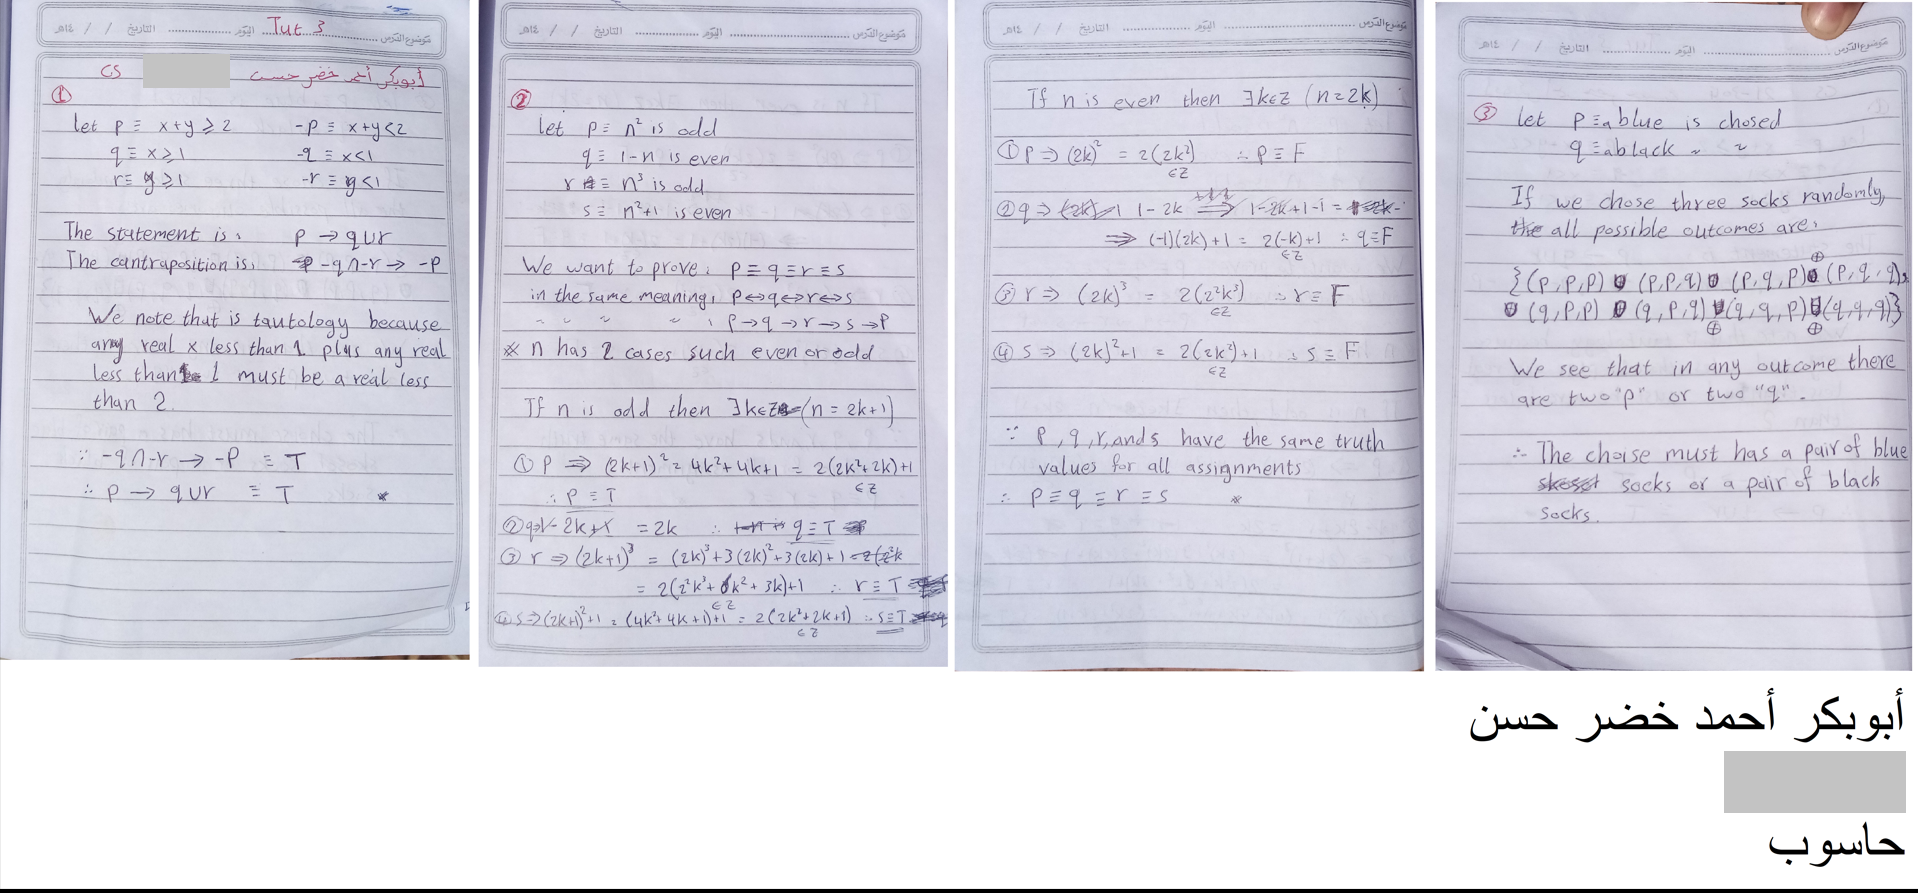 موضوع الدرس اليوم Tut 3 التاريخ / / ١٤هـ
أبوبكر أحمد خضر حسن CS
①
let p ≡ x+y ≥ 2 -p ≡ x+y<2
q ≡ x≥1 -q ≡ x<1
r ≡ y≥1 -r ≡ y<1
The statement is: p → q∪r
The contraposition is: -q∩-r → -p
We note that is tautology because
any real x less than 1 plus any real
less than 1 must be a real less
than 2.
∵ -q∩-r → -p ≡ T
∴ p → q∪r ≡ T *
موضوع الدرس اليوم التاريخ / / ١٤هـ
②
let p ≡ n² is odd
q ≡ 1-n is even
r ≡ n³ is odd
s ≡ n²+1 is even
We want to prove: p ≡ q ≡ r ≡ s
in the same meaning: p↔q↔r↔s
" " " " : p→q→r→s→p
* n has 2 cases such even or odd
If n is odd then ∃k∈Z (n = 2k+1)
① p ⇒ (2k+1)² = 4k²+4k+1 = 2(2k²+2k)+1
∈Z
∴ p ≡ T
② q⇒ 1-2k+1 = 2k ∴ q ≡ T
③ r ⇒ (2k+1)³ = (2k)³+3(2k)²+3(2k)+1
= 2(2²k³+6k²+3k)+1 ∴ r ≡ T
∈Z
④ s⇒(2k+1)²+1 = (4k²+4k+1)+1 = 2(2k²+2k+1) ∴ s≡T
∈Z
موضوع الدرس اليوم التاريخ / / ١٤هـ
If n is even then ∃k∈Z (n=2k)
① p ⇒ (2k)² = 2(2k²) ∴ p ≡ F
∈Z
② q ⇒ 1-2k ⇒ 1-2k+1-1 =
⇒ (-1)(2k)+1 = 2(-k)+1 ∴ q≡F
∈Z
③ r ⇒ (2k)³ = 2(2²k³) ∴ r ≡ F
∈Z
④ s ⇒ (2k)²+1 = 2(2k²)+1 ∴ s ≡ F
∈Z
∵ p, q, r, and s have the same truth
values for all assignments
∴ p ≡ q ≡ r ≡ s *
موضوع الدرس اليوم التاريخ / / ١٤هـ
③ let p ≡ a blue is chosed
q ≡ a black " "
If we chose three socks randomly,
all possible outcomes are:
{(p,p,p) ⊕ (p,p,q) ⊕ (p,q,p) ⊕ (p,q,q)
⊕ (q,p,p) ⊕ (q,p,q) ⊕ (q,q,p) ⊕ (q,q,q)}
We see that in any outcome there
are two "p" or two "q".
∴ The choise must has a pair of blue
socks or a pair of black
socks.
أبوبكر أحمد خضر حسن
حاسوب